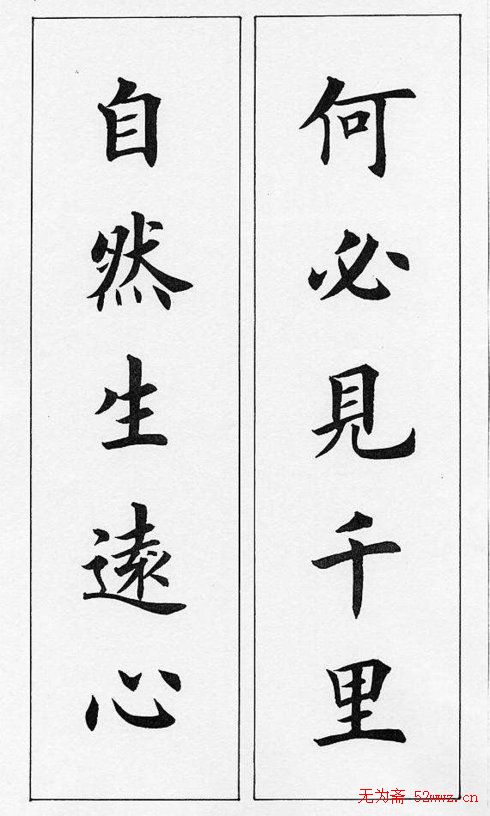 何必見千里
自然生遠心
无为斋 52wwz.cn